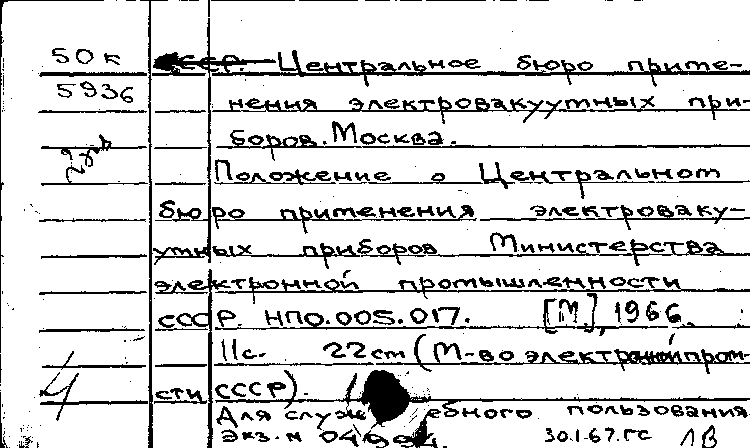 50к
5936
2 экз
СССР. Центральное бюро приме-
нения электровакуумных при-
боров. Москва.
Положение о Центральном
бюро применения электроваку-
умных приборов Министерства
электронной промышленности
СССР. НПО.005.017. [М], 1966.
11с. 22 см (М-во электронной пром-
сти СССР).
4
Для служебного пользования
экз. №
30.1.67.ГС 1В